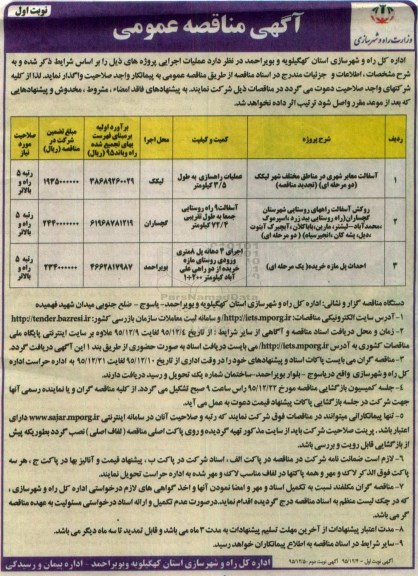 نوبت اول
آگهی مناقصه عمومی
وزارت راه و شهرسازی
اداره کل راه و شهرسازی استان کهگیلویه و بویراحمد در نظر دارد عملیات اجرایی پروژه های ذیل را بر اساس شرایط ذکر شده و به
شرح مشخصات، اطلاعات و جزئیات مندرج در اسناد مناقصه از طریق مناقصه عمومی به پیمانکار واجد صلاحیت واگذار نماید. لذا از کلیه
شرکتهای واجد صلاحیت دعوت می گردد در مناقصات ذیل شرکت نمایند. به پیشنهادهای فاقد امضاء، مشروط، مخدوش و پیشنهادهایی
که بعد از موعد مقرر واصل شود ترتیب اثر داده نخواهد شد.
ردیف | شرح پروژه | کمیت و کیفیت | محل اجرا | برآورد اولیه برمبنای فهرست بهای تجمیع شده راه وباند۹۵ (ریال) | مبلغ تضمین شرکت در مناقصه (ریال) | صلاحیت مورد نیاز
۱ | آسفالت معابر شهری در مناطق مختلف شهر لیکک (دو مرحله ای) (تجدید مناقصه) | عملیات راهسازی به طول ۳/۵ کیلومتر | لیکک | ۳۸۶۸۹۲۶۰۰۲۹ | ۱۹۳۵۰۰۰۰۰۰ | رتبه ۵ راه و بالاتر
۲ | روکش آسفالت راههای روستایی شهرستان گچساران(راه روستایی بیدزرد ناصیرموک -محمدآباد-لیشتر، مارین،باباکلان،آبچیرک آبتوت -دیل، پشه کان -انجیرسیاه) (دو مرحله ای) | آسفالت۹ راه روستایی جمعا به طول تقریبی ۷۲/۴ کیلومتر | گچساران | ۶۱۹۶۸۷۸۱۲۱۹ | ۲۴۴۰۰۰۰۰۰۰ | رتبه ۵ راه و بالاتر
۳ | احداث پل مازه خریده( یک مرحله ای) | اجرای ۳ دهانه پل ۸متری ورودی روستای مازه خریده از دو راهی علی آباد کیلومتر ۲۰۰+۱ | بویراحمد | ۴۶۶۲۸۱۷۹۸۷ | ۲۳۴۰۰۰۰۰۰ | رتبه ۵ راه و بالاتر
دستگاه مناقصه گزار و نشانی: اداره کل راه و شهرسازی استان کهگیلویه وبویراحمد- یاسوج - ضلع جنوبی میدان شهید فهمیده
۱-آدرس سایت الکترونیکی مناقصات: http://iets.mporg.ir وسامانه ثبت معاملات سازمان بازرسی کشور: http://tender.bazresi.ir
۲- زمان و محل دریافت اسناد مناقصه و آگاهی از سایر شرایط : از تاریخ ۹۵/۱۲/۴ لغایت ۹۵/۱۲/۹ علاوه بر سایت اینترنتی پایگاه ملی
مناقصات کشوری به آدرس http://iets.mporg.ir/می بایست دریافت اسناد به صورت حضوری از طریق بند ۱ این آگهی دریافت گردد.
۳- مناقصه گران می بایست پاکات اسناد و پیشنهادهای خود را در وقت اداری از تاریخ ۹۵/۱۲/۱۰ لغایت ۹۵/۱۲/۲۱ به اداره حراست اداره
کل راه و شهرسازی واقع دریاسوج - بلوار بویراحمد-ساختمان شماره یک تحویل و رسید دریافت دارند.
۴- جلسه کمیسیون بازگشایی مناقصه مورخ ۹۵/۱۲/۲۲ راس ساعت ۹ صبح تشکیل می گردد. از کلیه مناقصه گران و یا نماینده رسمی آنها
جهت شرکت در جلسه بازگشایی پاکات پیشنهاد قیمت دعوت به عمل می آید.
۵- تنها پیمانکارانی میتوانند در مناقصات فوق شرکت نمایند که رتبه و صلاحیت آنان در سامانه اینترنتی www.sajar.mporg.ir دارای
اعتبار باشد. پرینت صلاحیت شرکت باید از سایت مذکور تهیه گردیده و روی پاکت اصلی مناقصه (لفاف اصلی) نصب گردد بطوریکه پیش
از بازگشایی قابل رویت و بررسی باشد.
۶- لازم است ضمانت نامه شرکت در مناقصه در پاکت الف، اسناد شرکت در پاکت ب، پیشنهاد قیمت و آنالیز بها در پاکت ج، هر سه
پاکت فوق الذکر لاک و مهر و همه پاکتها در لفاف مناسب لاک و مهر شده به اداره حراست تحویل نمایند.
۷- مناقصه گران مکلفند نسبت به تکمیل اسناد و مهر و امضا نمودن آنها و اخذ گواهی های لازم درخواستی اداره کل راه و شهرسازی،
که در چک لیست منظم به اسناد مناقصه درج گردیده اقدام نمایند. درصورت عدم تکمیل و ارائه اسناد درخواستی مسئولیت به عهده مناقصه
گر می باشد.
۸- مدت اعتبار پیشنهادات از آخرین مهلت تسلیم پیشنهادات به مدت ۳ ماه می باشد و قابل تمدید تا سه ماه دیگر می باشد.
۹- سایر شرایط در اسناد مناقصه به اطلاع پیمانکاران خواهد رسید.
آگهی نوبت اول - ۹۵/۱۲/۴ آگهی نوبت دوم -۹۵/۱۲/۵
اداره کل راه و شهرسازی استان کهگیلویه وبویراحمد - اداره پیمان و رسیدگی